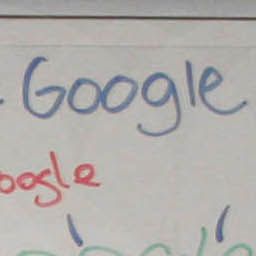 Google
oogle